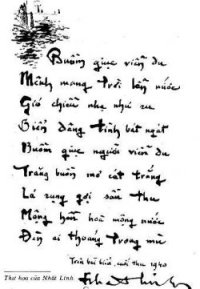 Buồm giục viễn du
Mênh mang trời lẫn nước
Gió chiều nhẹ như ru
Biển dâng tình bát ngát
Buồm giục người viễn du
Trăng buồn mơ cát trắng
Lá rụng gợi sầu thu
Mộng hồn hoà mộng nước
Đèn ai thoáng trong mù
Trên bãi biển, cuối thu 1940
Thư họa của Nhất Linh